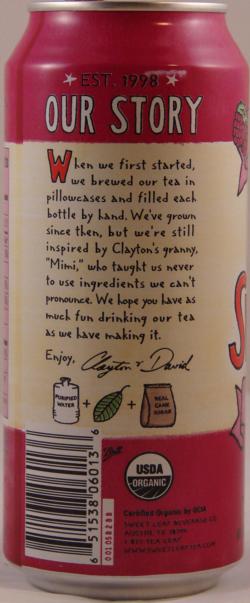 EST. 1998
OUR STORY
When we first started,
we brewed our tea in
pillowcases and filled each
bottle by hand. We've grown
since then, but we're still
inspired by Clayton's granny,
"Mimi," who taught us never
to use ingredients we can't
pronounce. We hope you have as
much fun drinking our tea
as we have making it.
Enjoy, Clayton & David
PURIFIED
WATER
+
+
REAL
CANE
SUGAR
6 51538 06013 6
USDA
ORGANIC
Certified Organic by QCIA
SWEET LEAF BEVERAGE CO.
AUSTIN, TX
WWW.SWEETLEAFTEA.COM
S